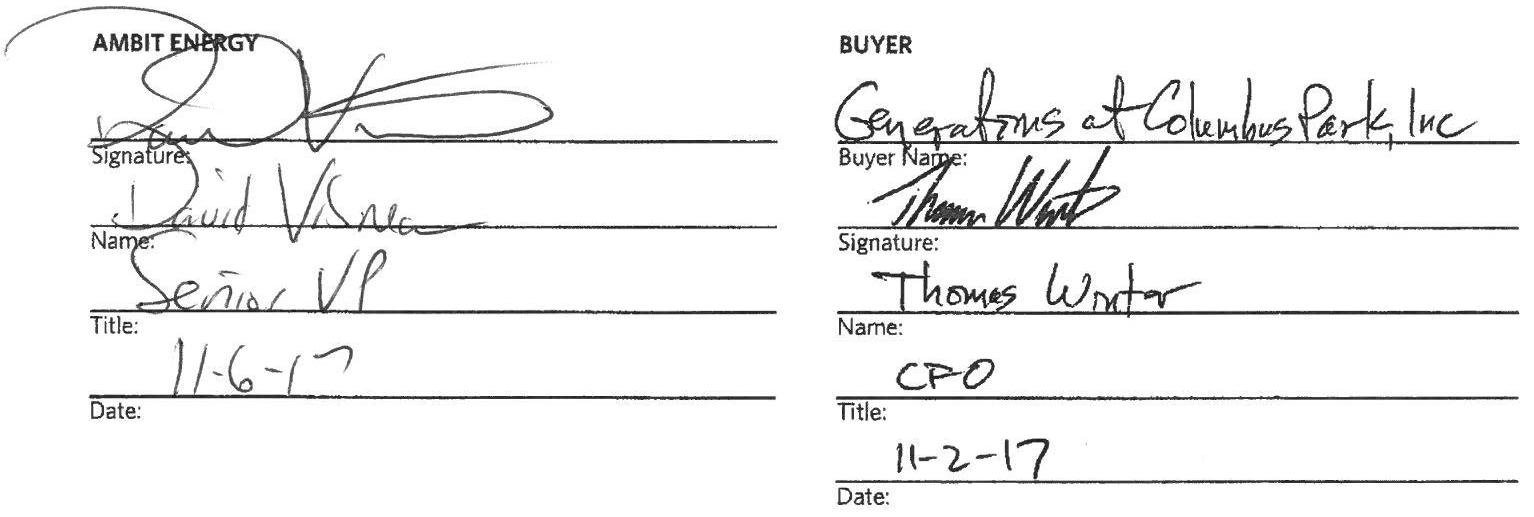 AMBIT ENERGY
Signature:
David
Name:
Senior VP
Title:
11-6-17
Date:
BUYER
Generations at Columbus Park, Inc
Buyer Name:
Thomas Winter
Signature:
Thomas Winter
Name:
CFO
Title:
11-2-17
Date: